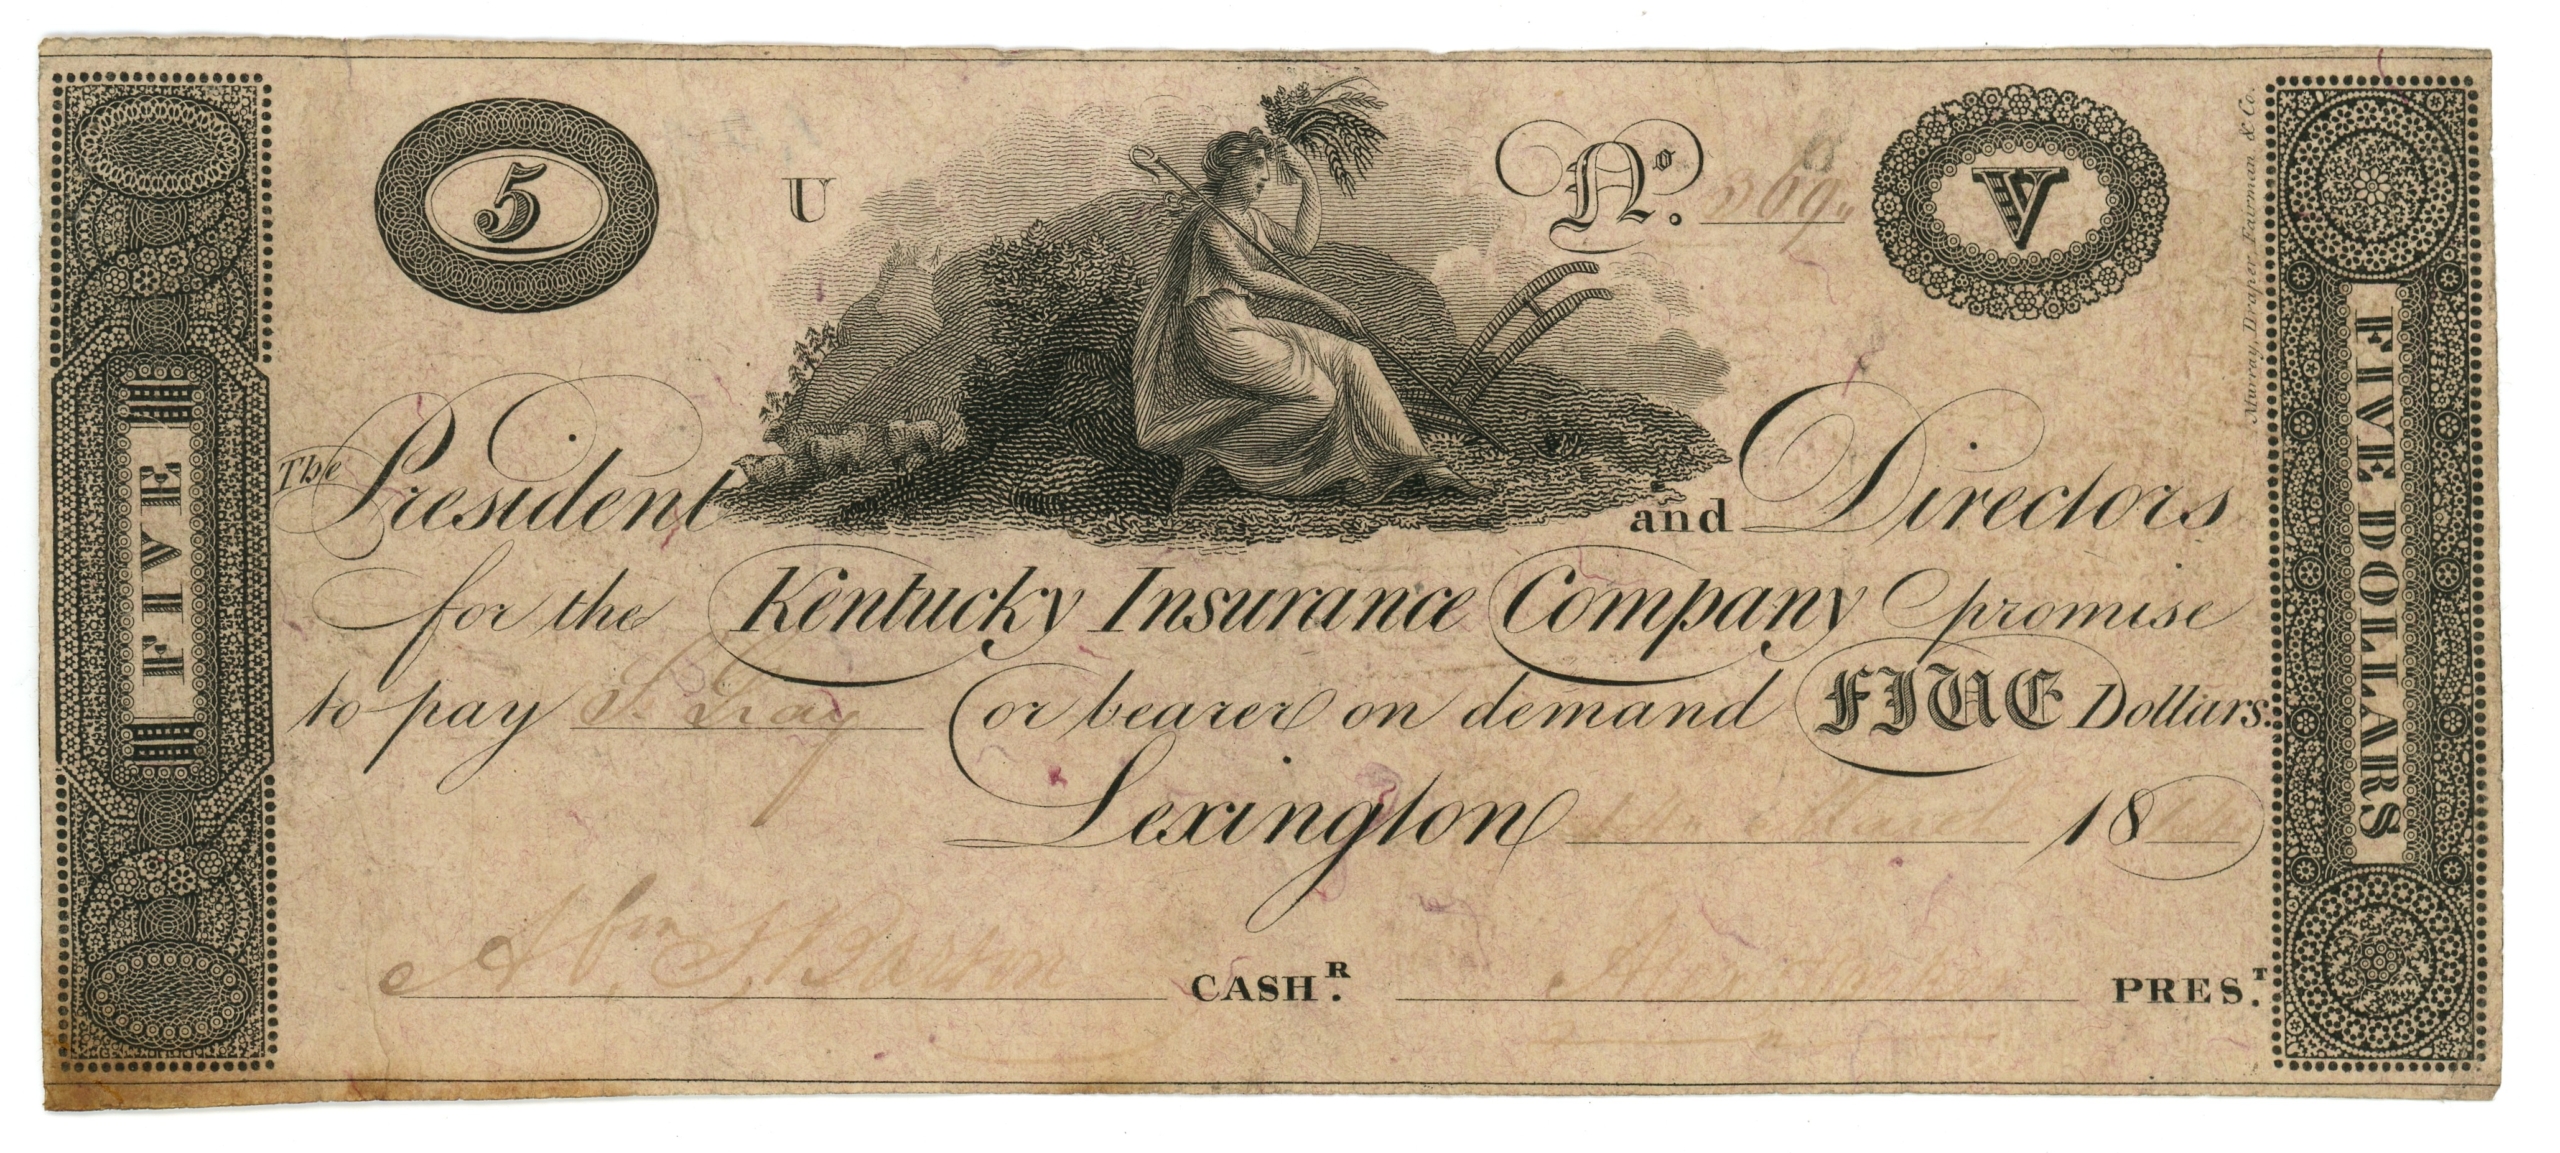 5 U No. 369 V
The President and Directors
for the Kentucky Insurance Company promise
to pay S. Gray or bearer on demand FIVE Dollars.
Lexington March 18
CASHR. PREST.
FIVE
FIVE DOLLARS
Murray, Draper Fairman & Co.